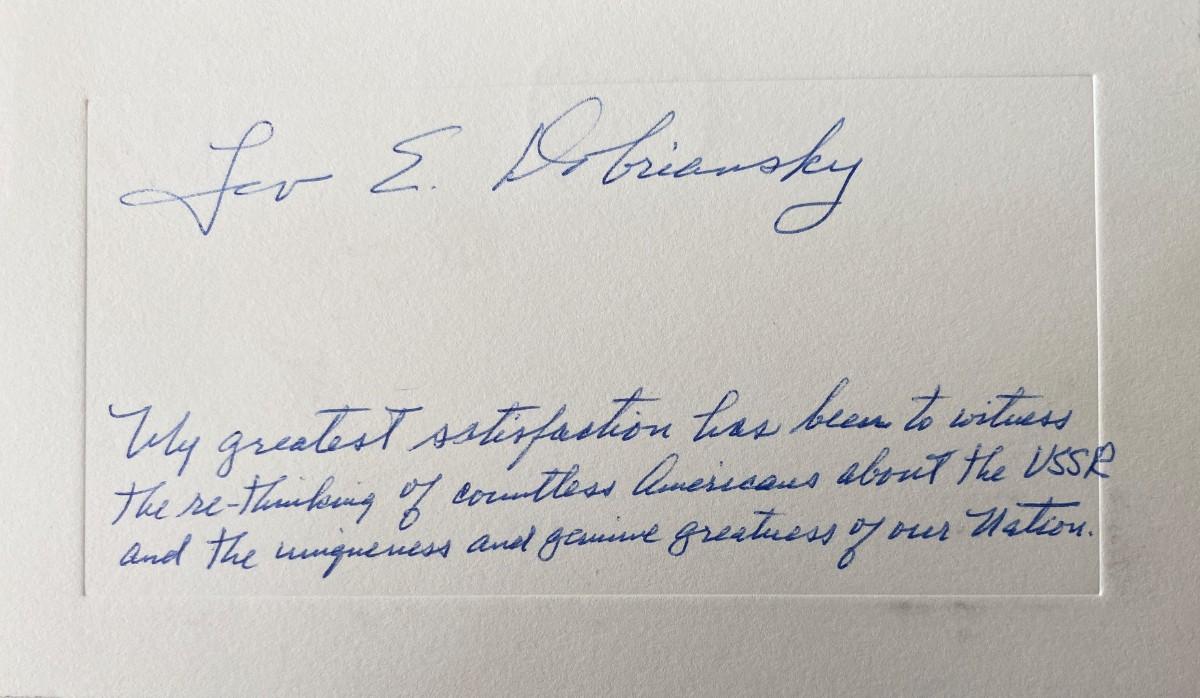 Lev E. Dobriansky
My greatest satisfaction has been to witness
the re-thinking of countless Americans about the USSR
and the uniqueness and genuine greatness of our Nation.